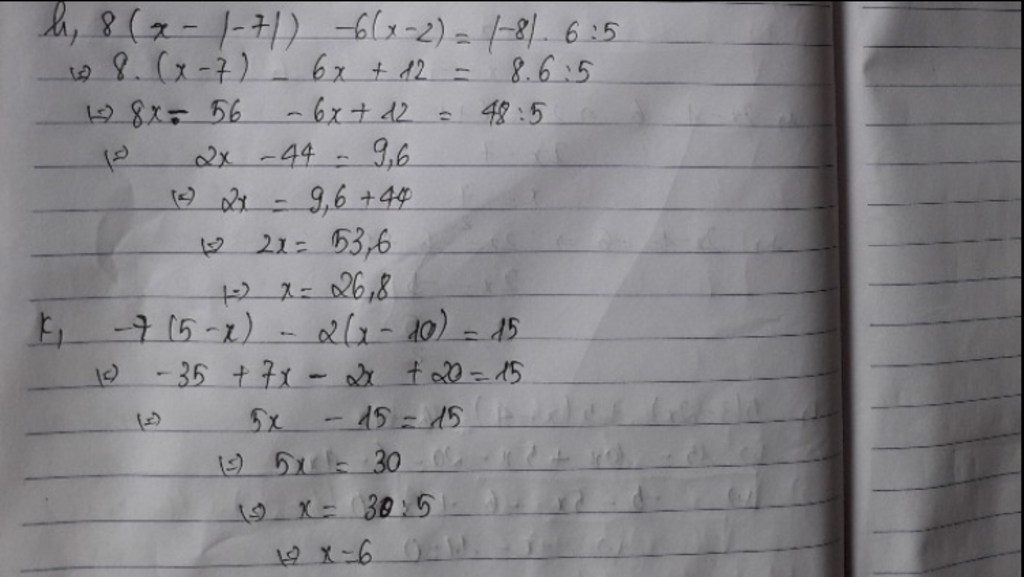 h, 8(x - |-7|) -6(x-2) = |-8|. 6 :5
⇔ 8. (x-7) - 6x + 12 = 8.6 :5
⇔ 8x - 56 - 6x + 12 = 48:5
⇔ 2x - 44 = 9,6
⇔ 2x = 9,6 +44
⇔ 2x = 53,6
⇔ x = 26,8
k, -7 (5-x) - 2(x - 10) = 15
⇔ -35 + 7x - 2x + 20 = 15
⇔ 5x - 15 = 15
⇔ 5x = 30
⇔ x = 30:5
⇔ x = 6